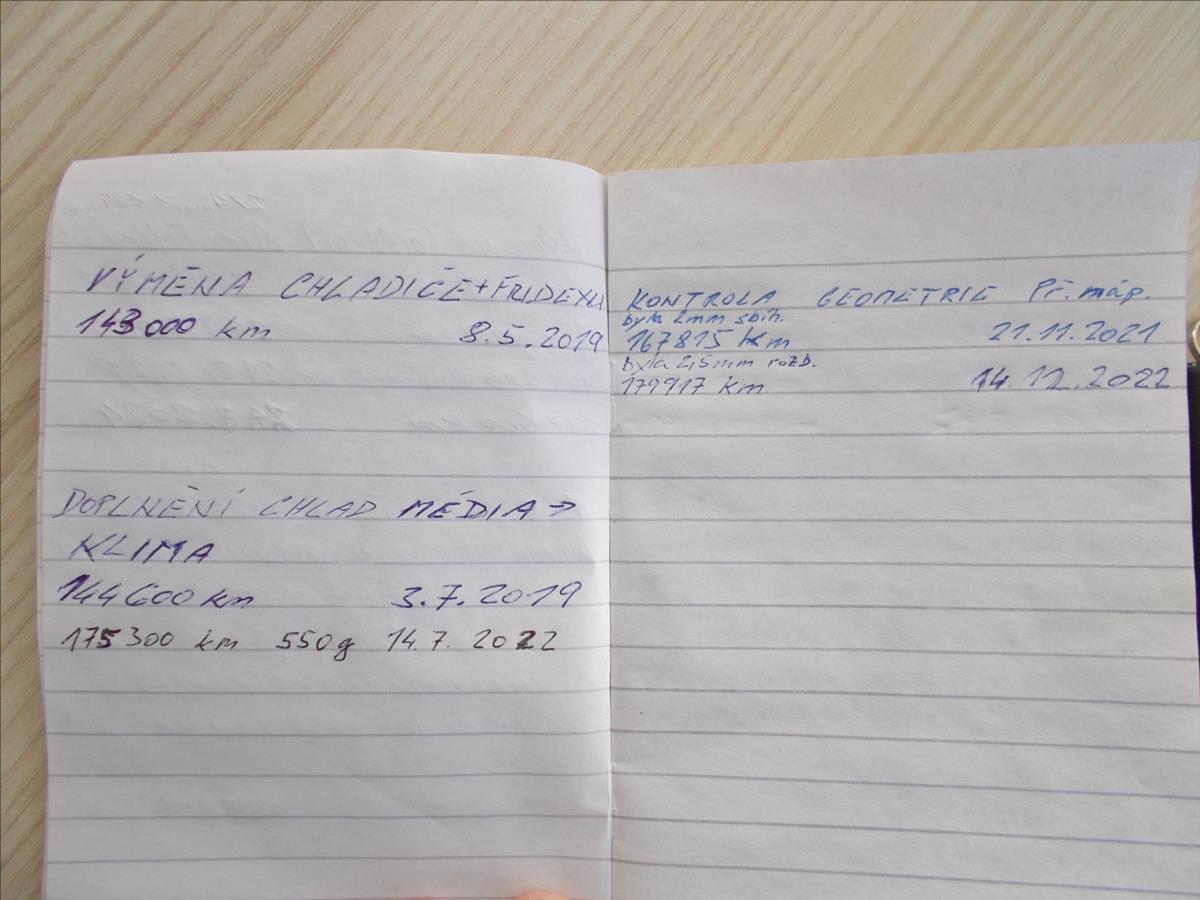 VÝMĚNA CHLADIČE + FRIDEXU
143000 km 8.5.2019
DOPLNĚNÍ CHLAD MÉDIA →
KLIMA
144600 km 3.7.2019
175300 km 550g 14.7.2022
KONTROLA GEOMETRIE Př. náp.
byla 2mm sbih.
167815 km 21.11.2021
byla 2,5mm rozb.
179917 km 14.12.2022